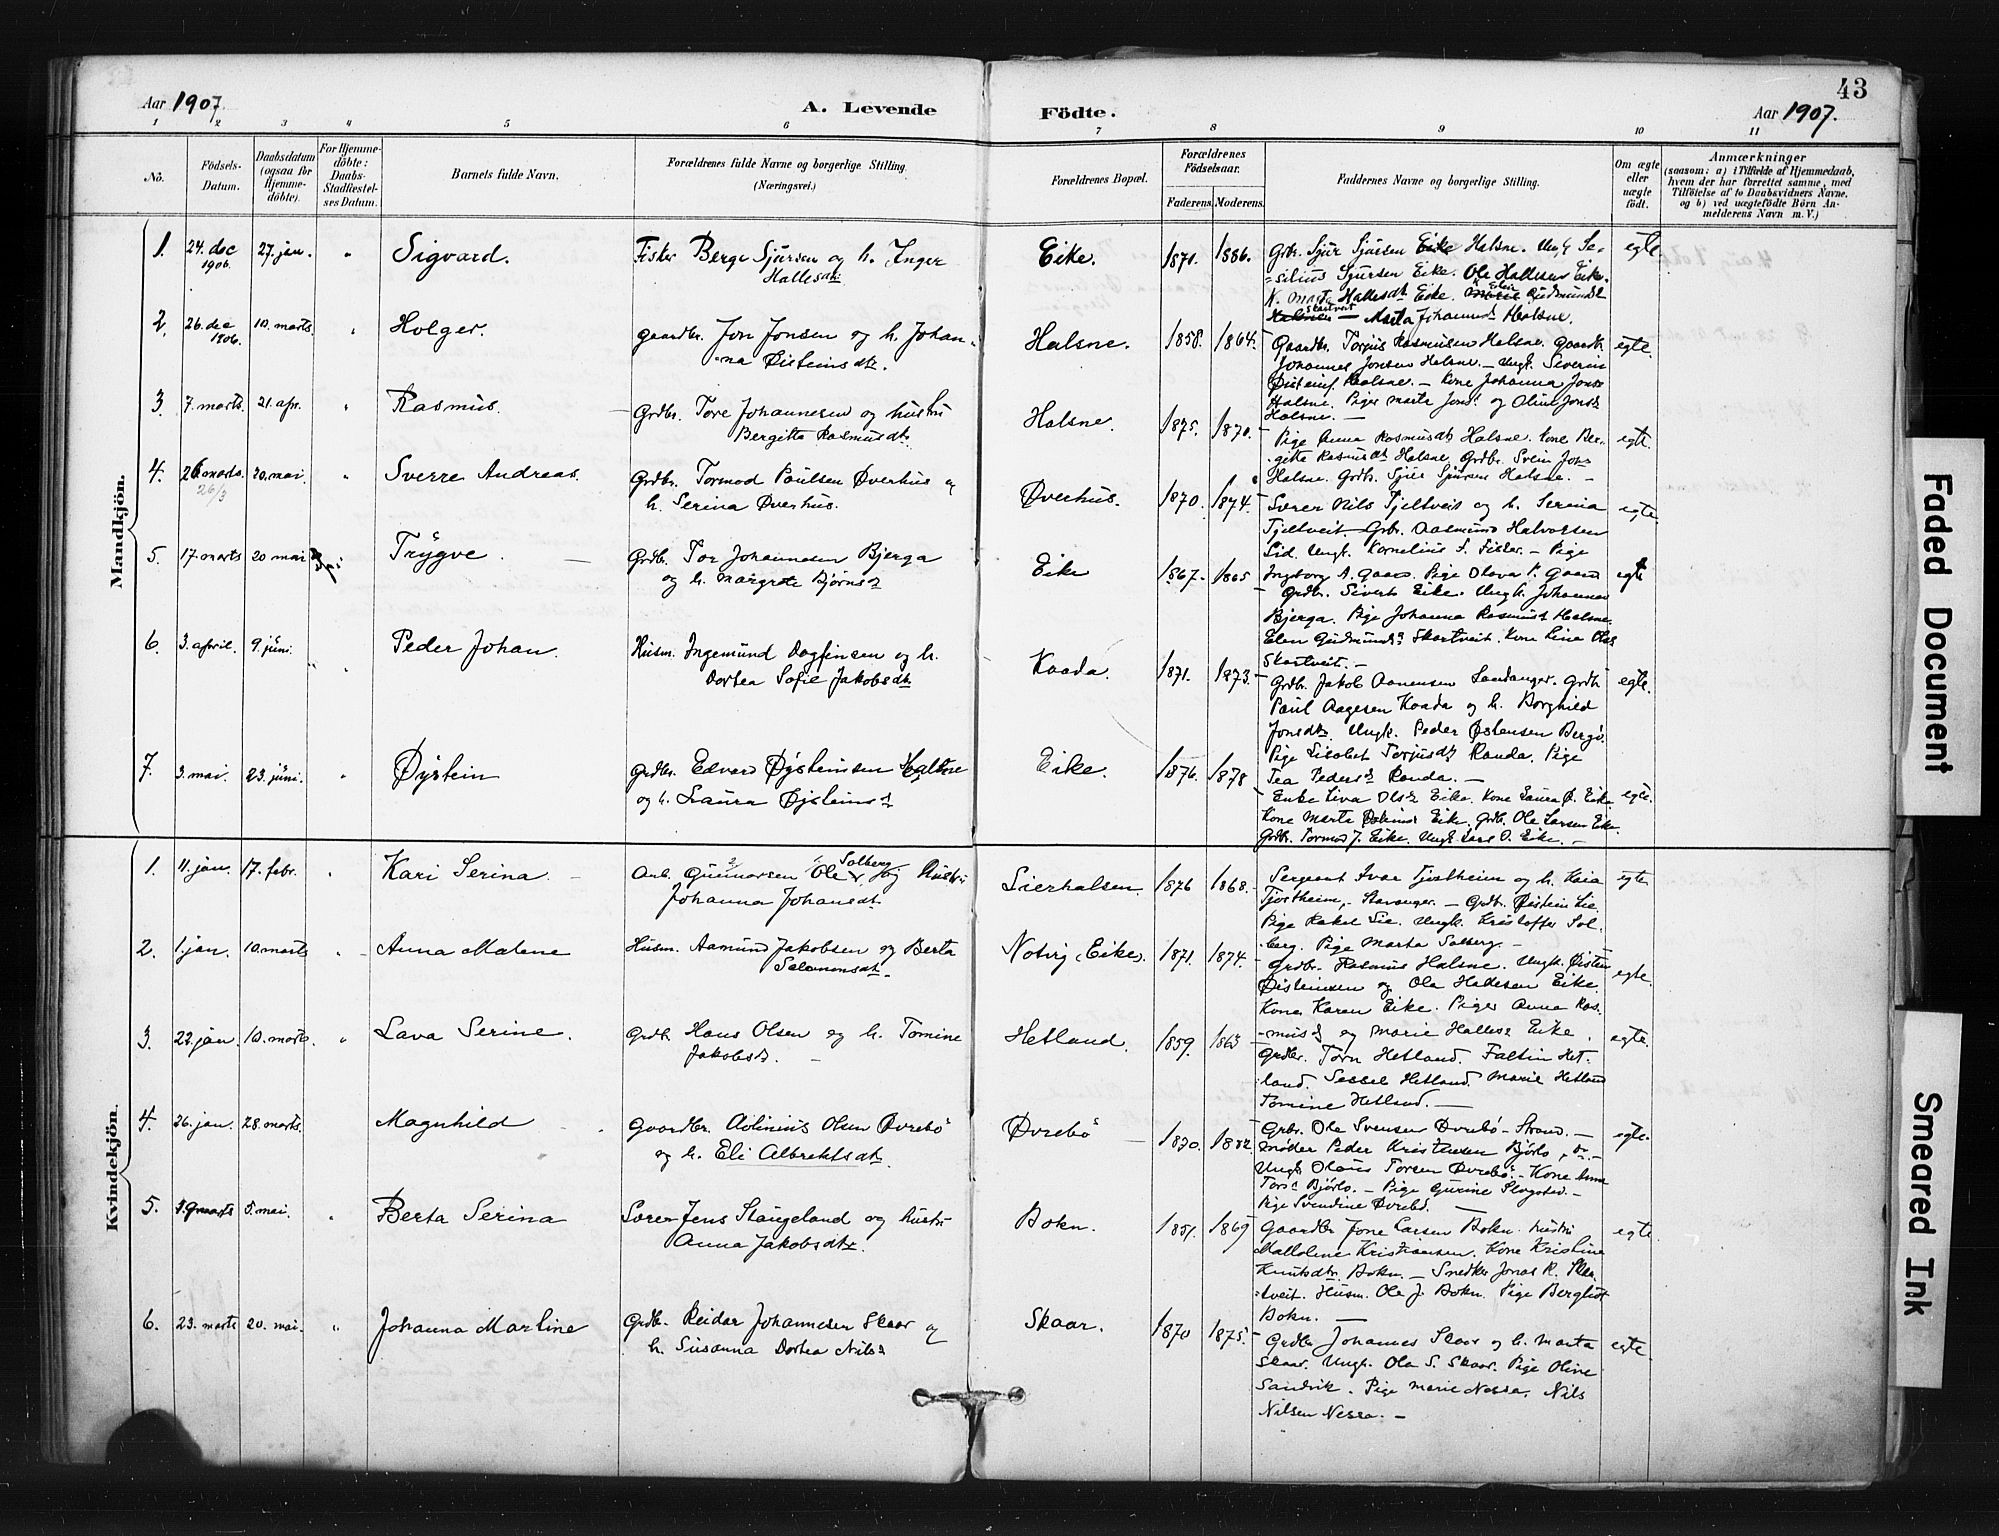 43
Aar 1907. A. Levende Födte. Aar 1907.
1 2 3 4 5 6 7 8 9 10 11
No. Födsels-Datum. Daabsdatum (ogsaa for Hjemme-döbte). For Hjemme-döbte: Daabs-Stadfæstel-ses Datum. Barnets fulde Navn. Forældrenes fulde Navne og borgerlige Stilling. (Næringsvei.) Forældrenes Bopæl. Forældrenes Födselsaar. Faderens. Moderens. Faddernes Navne og borgerlige Stilling. Om ægte eller uægte födt. Anmærkninger (saasom: a) i Tilfælde af Hjemmedaab, hvem der har forrettet samme, med Tilföielse af to Daabsvidners Navne, og b) ved uægtefödte Börn An-melderens Navn m. V.)
Mandkjön.
1. 24. dec 1906. 27. jan. " Sigvard. Fisker Berge Sjursen og h. Inger Hallesdt. Eike. 1871. 1886. egte.
Grdbr. Sjur Sjursen Eike Halsne. Ungk.
Sjursen Eike. Ole Hallesen Eike.
K. Marta Hallesdt Eike. Gudmundsd.
Skartveit — Marta Johannesd. Halsne.
2. 26. dec 1906. 10. marts. " Holger. gaardbr. Jon Jonsen og h. Johan-na Østeinsdt. Halsne. 1858. 1864. egte.
Gaardbr. Torjus Rasmussen Halsne. Gaardb.
Johannes Jonsen Halsne. — Ungk. Severin
Halsne. — Kone Johanna Jons
Halsne. Piger Marta Jonsd. og Oline Jonsd.
Halsne. —
3. 7. marts. 21. apr. " Rasmus. Grdbr. Tore Johannesen og hustru Bergitte Rasmusdt. Halsne. 1875. 1870. egte.
Pige Anna Rasmusdt Halsne. Kone Ber-
gitte Rasmusdt Halsne. Grdbr. Svein Jons
Halsne. Grdb. Sjur Sjursen Halsne. —
4. 26 marts. 26/3 20. mai. " Sverre Andreas. Grdbr. Tormod Paulsen Øverhus og h. Serina Øverhus. Øverhus. 1870. 1874. egte.
Lærer Nils Tjeltveit og h. Serina
Tjeltveit. Grbr. Aasmund Halvorsen
Lid. Ungk. Kornelius S. Fister. — Pige
Ingborg A. Gaard. Pige Olava P. Gaard
5. 17. marts 20 mai Trygve. Grdb. Tor Johannesen Bjerga og h. Margrete Bjørnsd. Eike 1867. 1865 egte
Grdbr. Sivert Eike. Ungk. Johannes
Bjerga. Pige Johanna Rasmusd. Halsne.
Elen Gudmundsd. Skartveit. Kone Lina Olas
Skartveit. —
6. 3. april. 9. juni. " Peder Johan. Husm. Ingemund Dagfinsen og h. Dortea Sofie Jakobsdt. Kaada. 1871. 1873. egte.
Grdbr. Jakob Aanensen Sandanger. Grdb.
Paul Aagesen Kaada og h. Borghild
Jonsdt. Ungk. Peder Østensen Bergö.
Pige Lisabet Torjusdt Randa. Pige
Tea Pedersd Randa. —
7. 3. mai. 23. juni. " Øystein Grdbr. Edvard Øysteinsen Halsne og h. Laura Øisteinsd. Eike. 1876. 1878 egte.
Enke Liva Olsd. Eike. Kone Laura Ø. Eike
Kone Marta Eike. Grdb. Ole Larsen Eike.
Grdbr. Tormod J. Eike. Ungk. Lars O. Eike. —
Kvindekjön.
1. 11. jan. 17. febr. " Kari Serina. Arb. Gunnarsen Ole Solberg og hustru Johanna Johansdt. Lierhalsen. 1876 1868. egte.
Sergeant Ivar Tjostheim og h. Kaia
Tjostheim, — Stavanger. — Grdb. Øistein Lie.
Pige Rakel Lie. Ungk. Kristoffer Sol-
berg. Pige Marta Solberg. —
2. 1. jan. 10. marts " Anna Malene Husm. Aamund Jakobsen og Berta Salomonsdt. Notvig (Eike). 1871. 1874. egte.
Grdbr. Rasmus Halsne. Ungk. Østen
Østeinsen og Ola Hallesen Eike.
Kone Karen Eike. Piger Anna Ras-
musd og Marie Hallesd Eike.
3. 22. jan. 10. marts. " Lava Serine. Grdb. Hans Olsen og h. Tomine Jakobsd. Hetland. 1859. 1863 egte.
Grdbr. Torn Hetland. Faltin Het-
land. Sessel Hetland. Marie Hetland
Tomine Hetland. —
4. 26. jan. 28. marts. Magnhild Gaardbr. Avlinius Olsen Øvrebö og h. Eli Albrektsdt. Øvrebö 1870. 1882. egte.
Grbr. Ole Svensen Øvrebö — Strand. —
Peder Kristensen Bjørlo,
Ungk. Olaus Torsen Øvrebö. Kone Anna
Torsd Bjørlo. — Pige Gurine —
Pige Svendine Øvrebö. —
5. 5. mai. " Berta Serina Lærer Jens Staugeland og hustru Anna Jakobsdtr. Bokn. 1851. 1869 egte.
Gaardbr Jone Larsen Bokn. hustru
Kristiansen. Kone Kristine
Knutsdtr. Bokn. — Snedker Jonas R.
tveit. Husm. Ola J. Bokn. Pige Bergliot
Bokn. —
6. 23. marts 20. mai. " Johanna Martine Grdb. Reidar Johannesen Skaar og h. Susanna Dortea Nilsd Skaar. 1870 1875. egte.
Grdbr Johannes Skaar og h. Marta
Skaar. Ungk. Ola S. Skaar. Pige Oline
Sandvik. Pige Marie Nessa. Nils
Nilsen Nessa. —
Faded Document
Smeared Ink